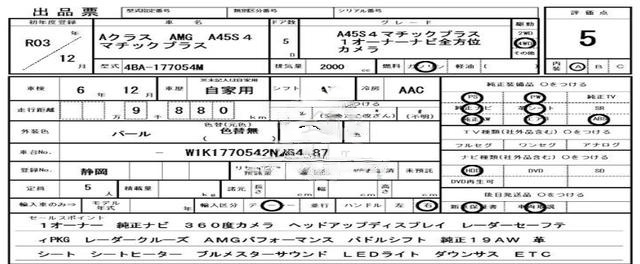 出品票 型式指定番号 類別区分番号 シリアル番号
初年度登録 車名 ドア数 グレード 駆動 評価点
R03年 12月 Aクラス AMG A45S4マチックプラス 5D A45S4マチックプラス 1オーナーナビ全方位カメラ 2WD 4WD その他 5
型式 4BA-177054M 排気量 2000cc 燃料 ガソリン 軽油 ( ) 内装 A B C
車検 6年 12月 車歴 ※未記入は自家用 自家用 シフト 冷房 AAC 純正装備品 ○をつける
走行距離 9千 880 PS PW 純正TV
純正ナビ 革シート SR
外装色 パール 色替(元色) 色替無 色 純正AW ABS
TV種類(社外品含む) ○をつける
フルセグ ワンセグ アナログ
車台No. - W1K1770542N
ナビ種類(社外品含む) ○をつける
登録No. 静岡 未預託 HDD DVD SD
DVD再生可
定員 5人 積載量 諸元 長さ 幅 高さ 後日発送品 ○をつける
輸入車のみ モデル年式 年 輸入区分 ディーラー 並行 ハンドル 左 右 新車保証書 車両取説
セールスポイント
1オーナー 純正ナビ 360度カメラ ヘッドアップディスプレイ レーダーセーフテ
ィPKG レーダークルーズ AMGパフォーマンス パドルシフト 純正19AW 革
シート シートヒーター ブルメスターサウンド LEDライト ダウンサス ETC